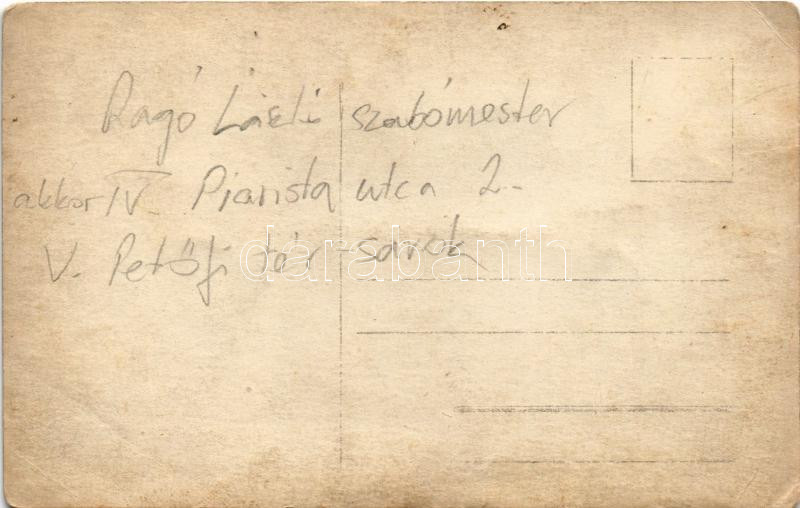 Ragó László szabómester
akkor IV. Piarista utca 2.
V. Petőfi tér-sarok
darabanth